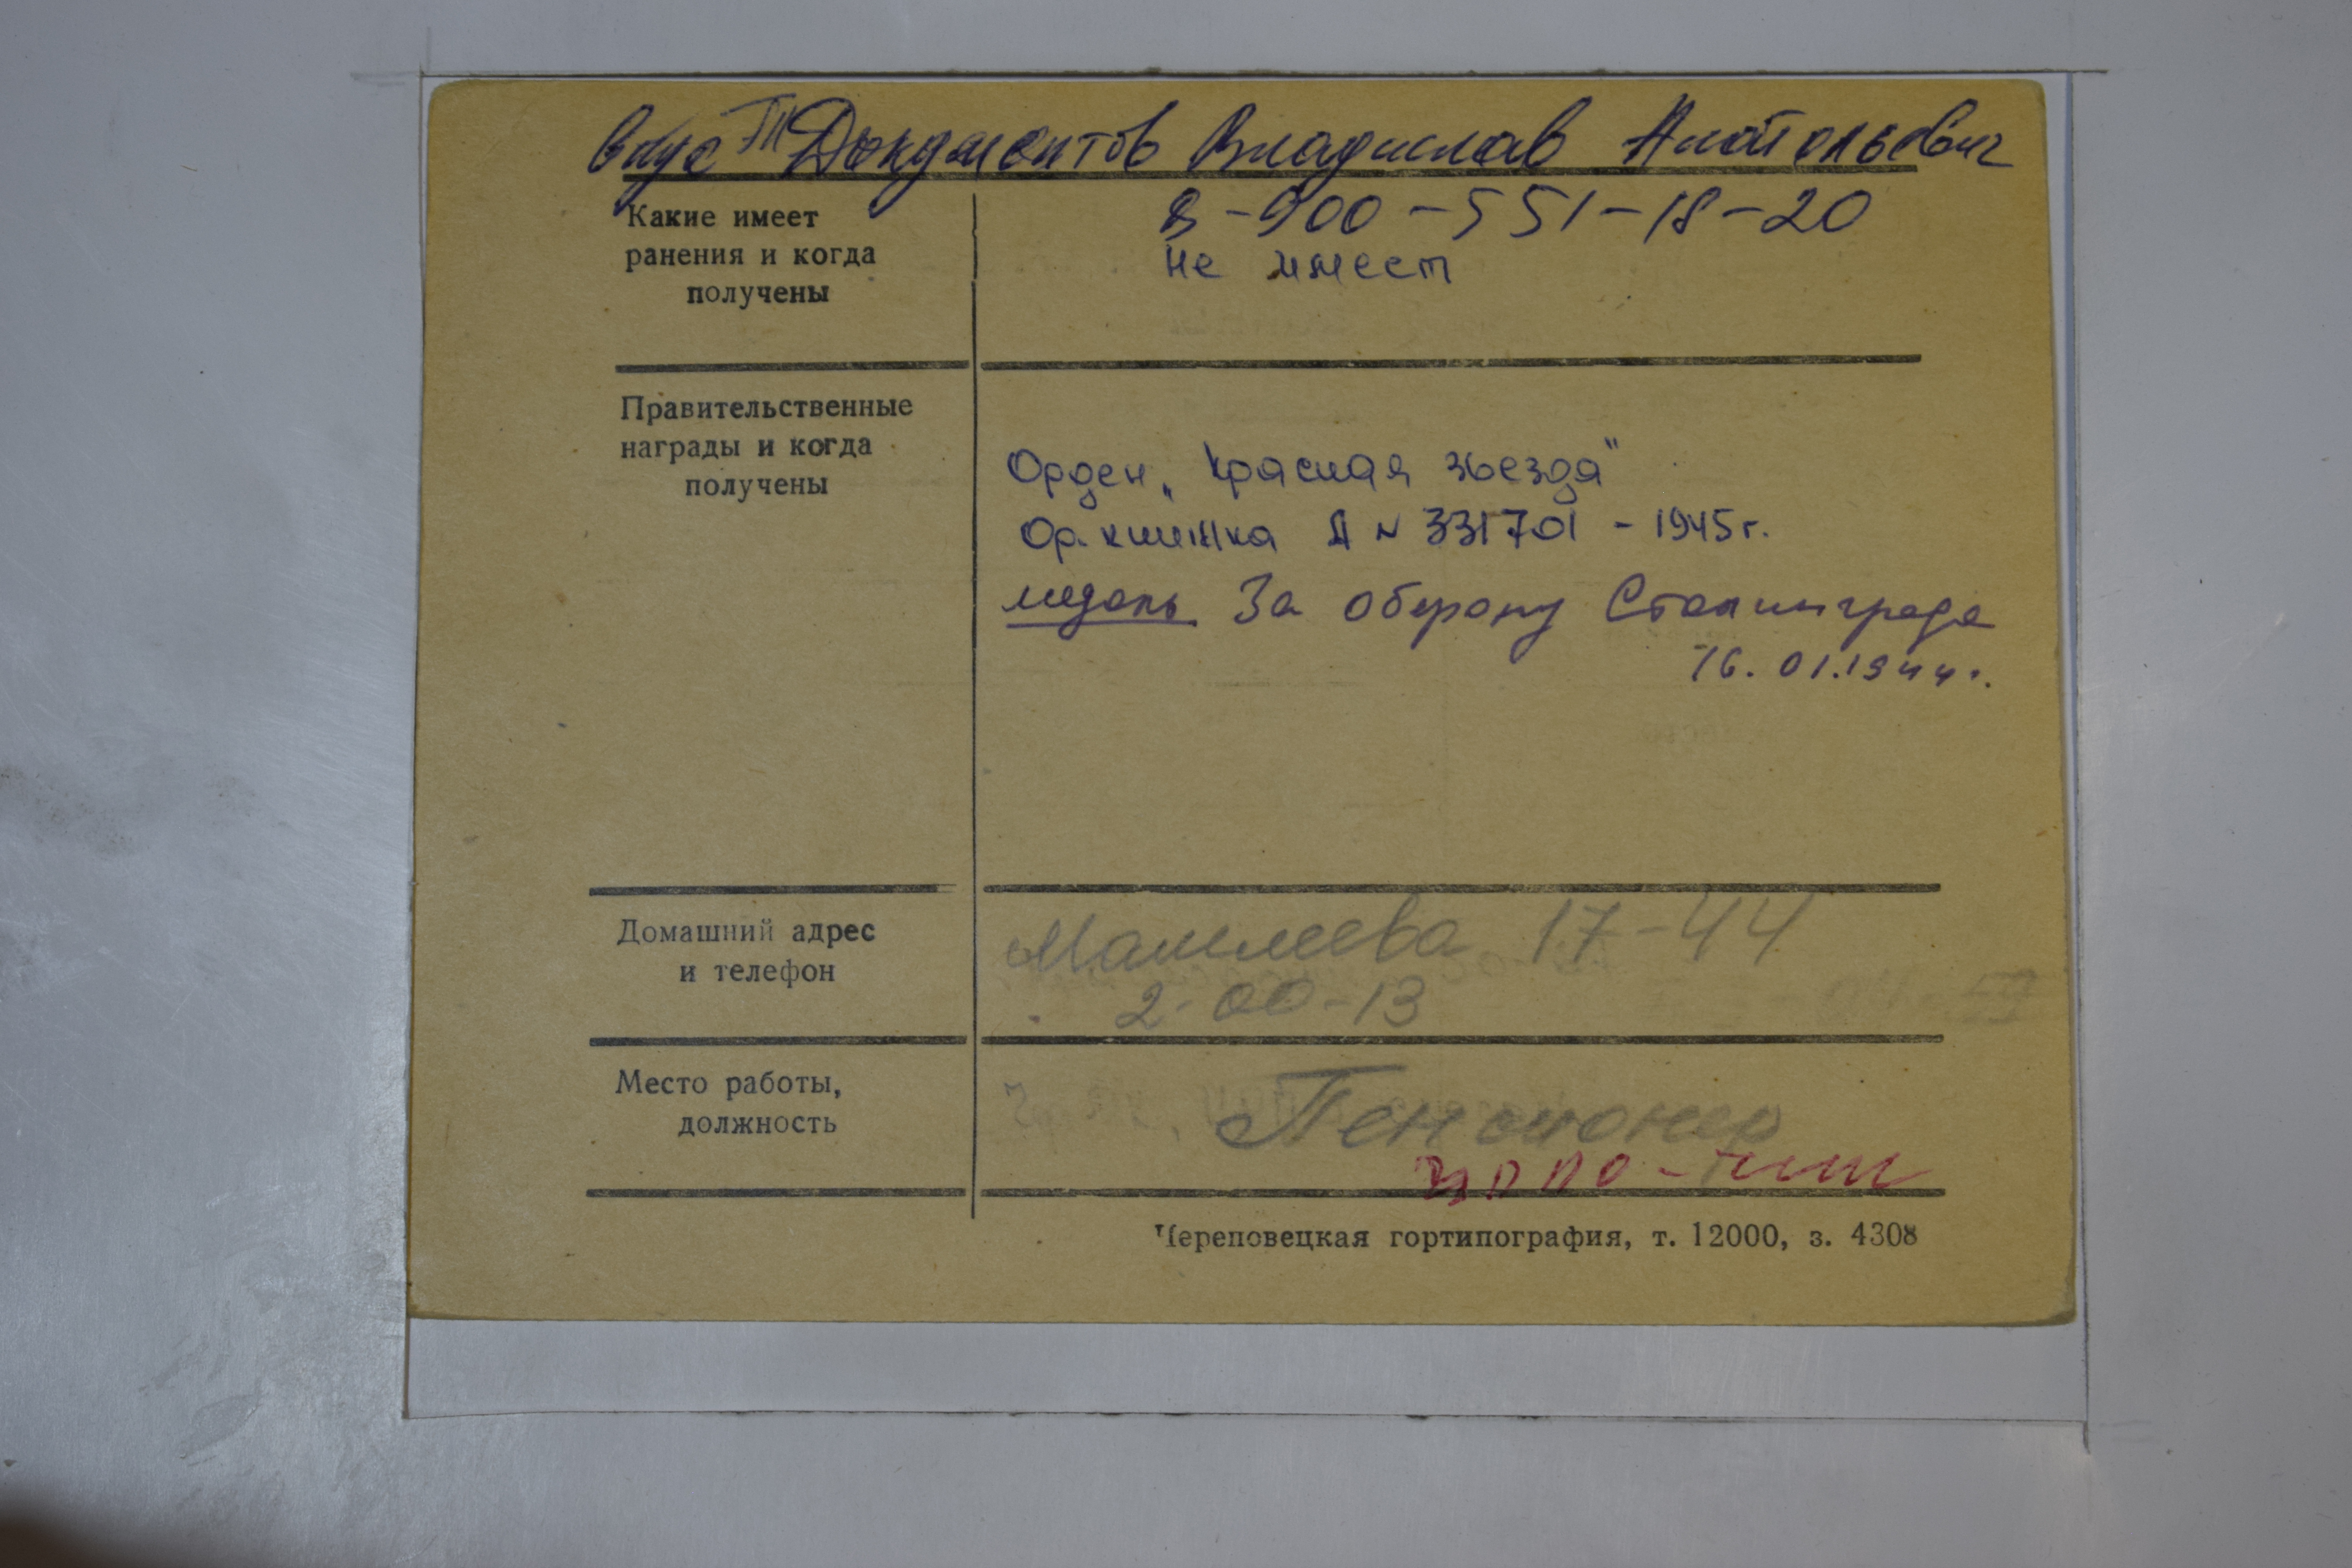 внук Владислав Анатольевич
8-900-551-18-20
Какие имеет
ранения и когда
получены
не имеет
Правительственные
награды и когда
получены
Орден „Красная звезда"
Ор. книжка А N 331701 - 1945 г.
медаль За оборону Сталинграда
16.01.1944 г.
Домашний адрес
и телефон
17-44
2-00-13
Место работы,
должность
Пенсионер
Череповецкая гортипография, т. 12000, з. 4308